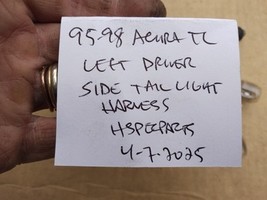 95-98 ACURA TL
LEFT DRIVER
SIDE TAIL LIGHT
HARNESS
HSPECPARTS
4-7-2025